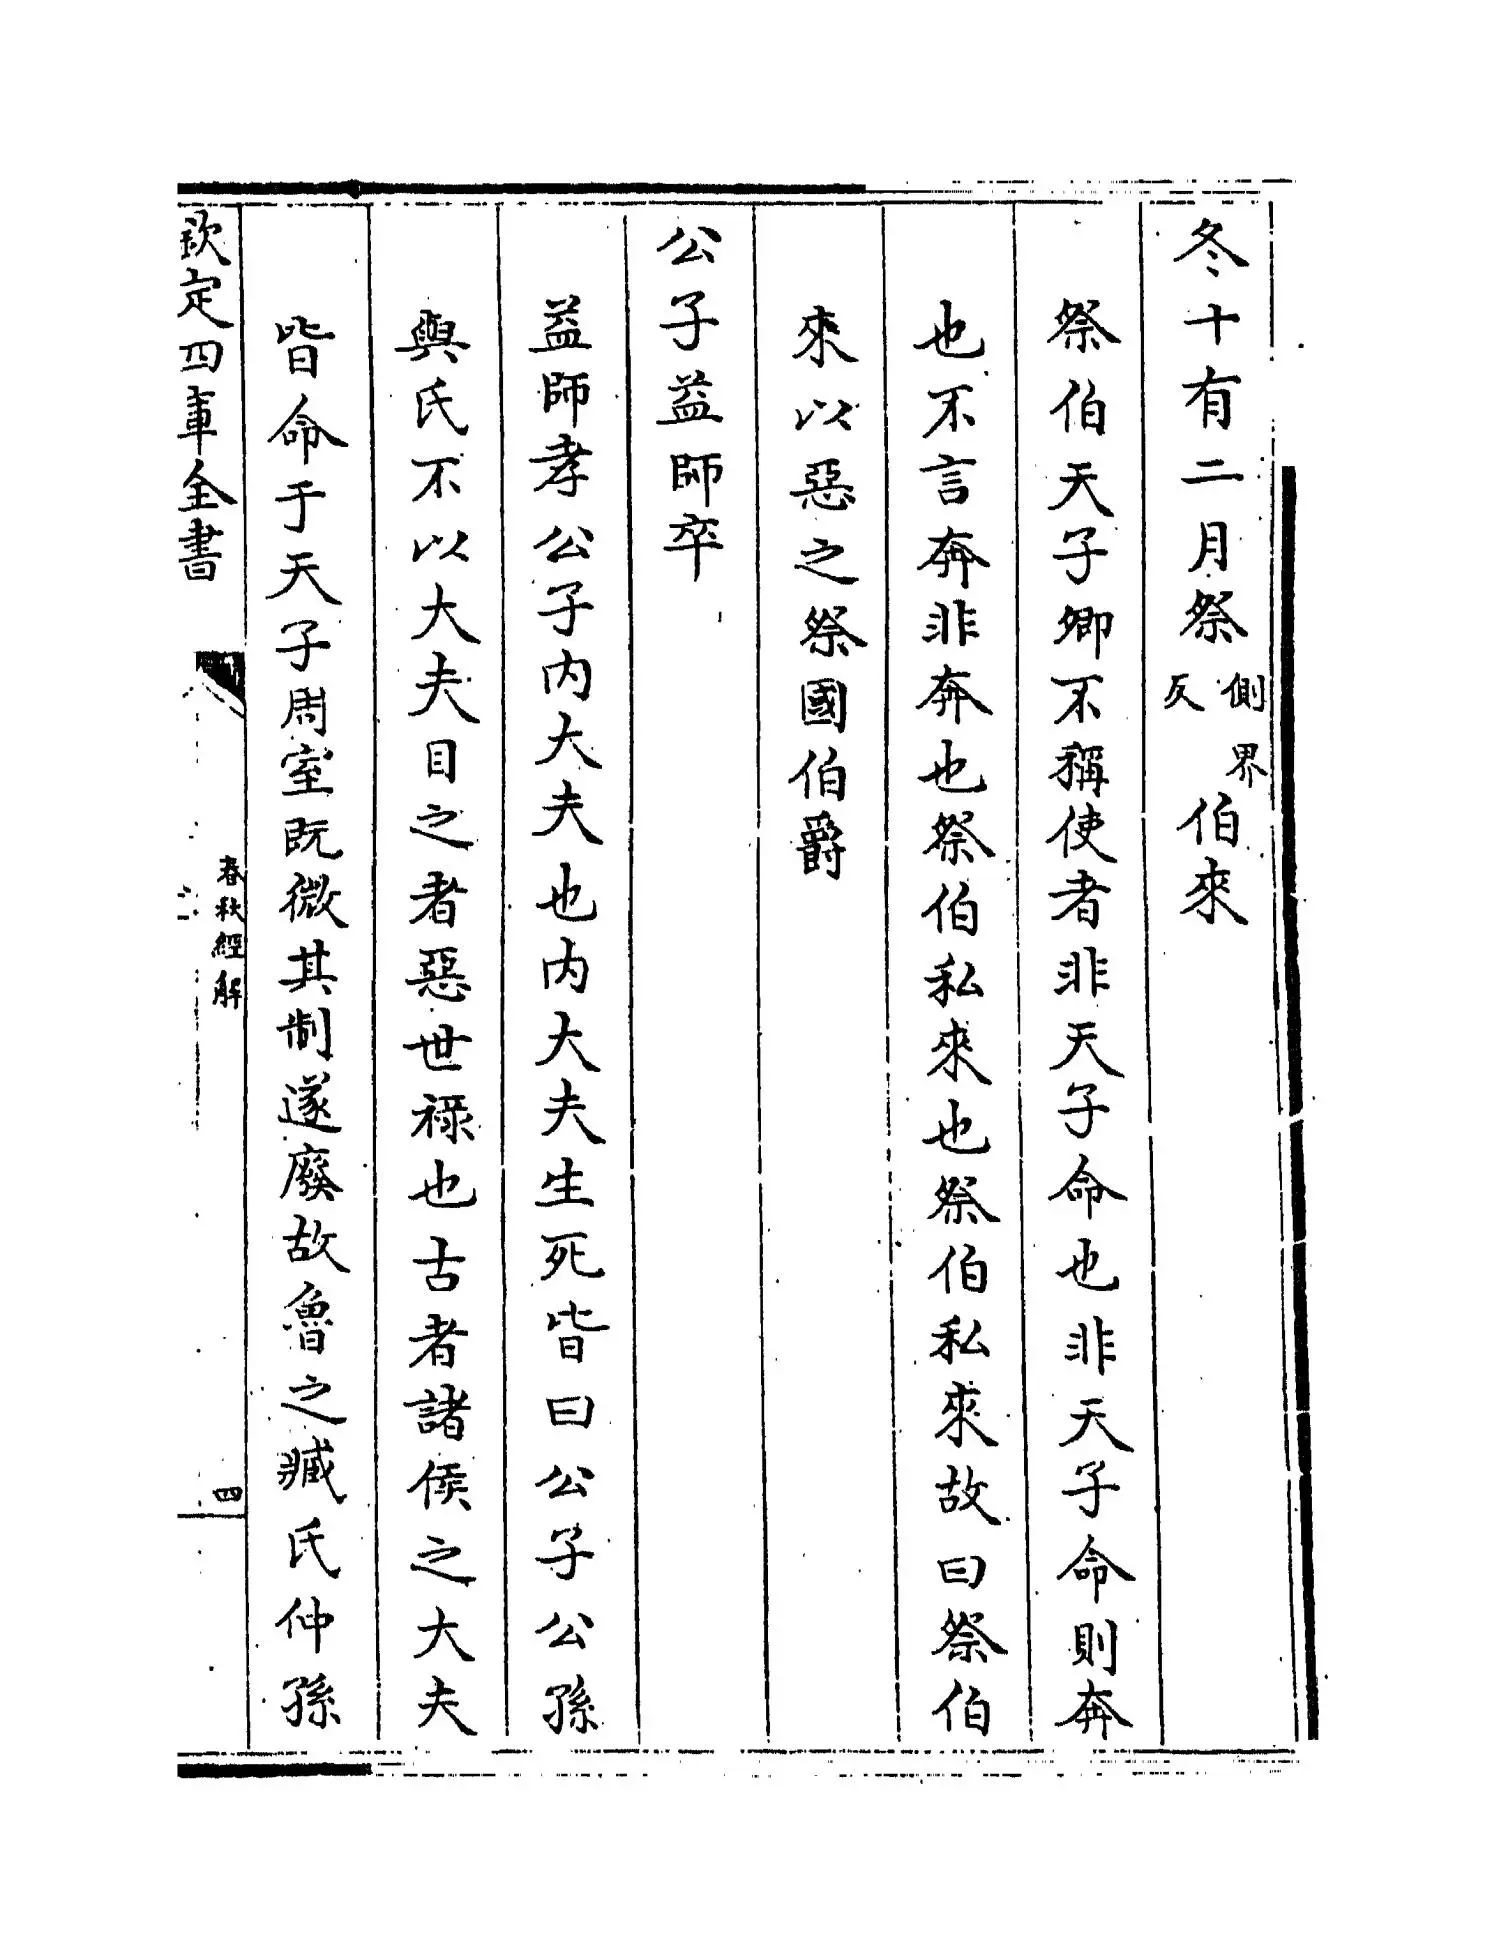 冬十有二月祭側界反伯來
祭伯天子卿不稱使者非天子命也非天子命則奔
也不言奔非奔也祭伯私來也祭伯私來故曰祭伯
來以惡之祭國伯爵
公子益師卒
益師孝公子內大夫也內大夫生死皆曰公子公孫
與氏不以大夫目之者惡世祿也古者諸侯之大夫
皆命于天子周室既微其制遂廢故魯之臧氏仲孫
欽定四庫全書
春秋經解
四